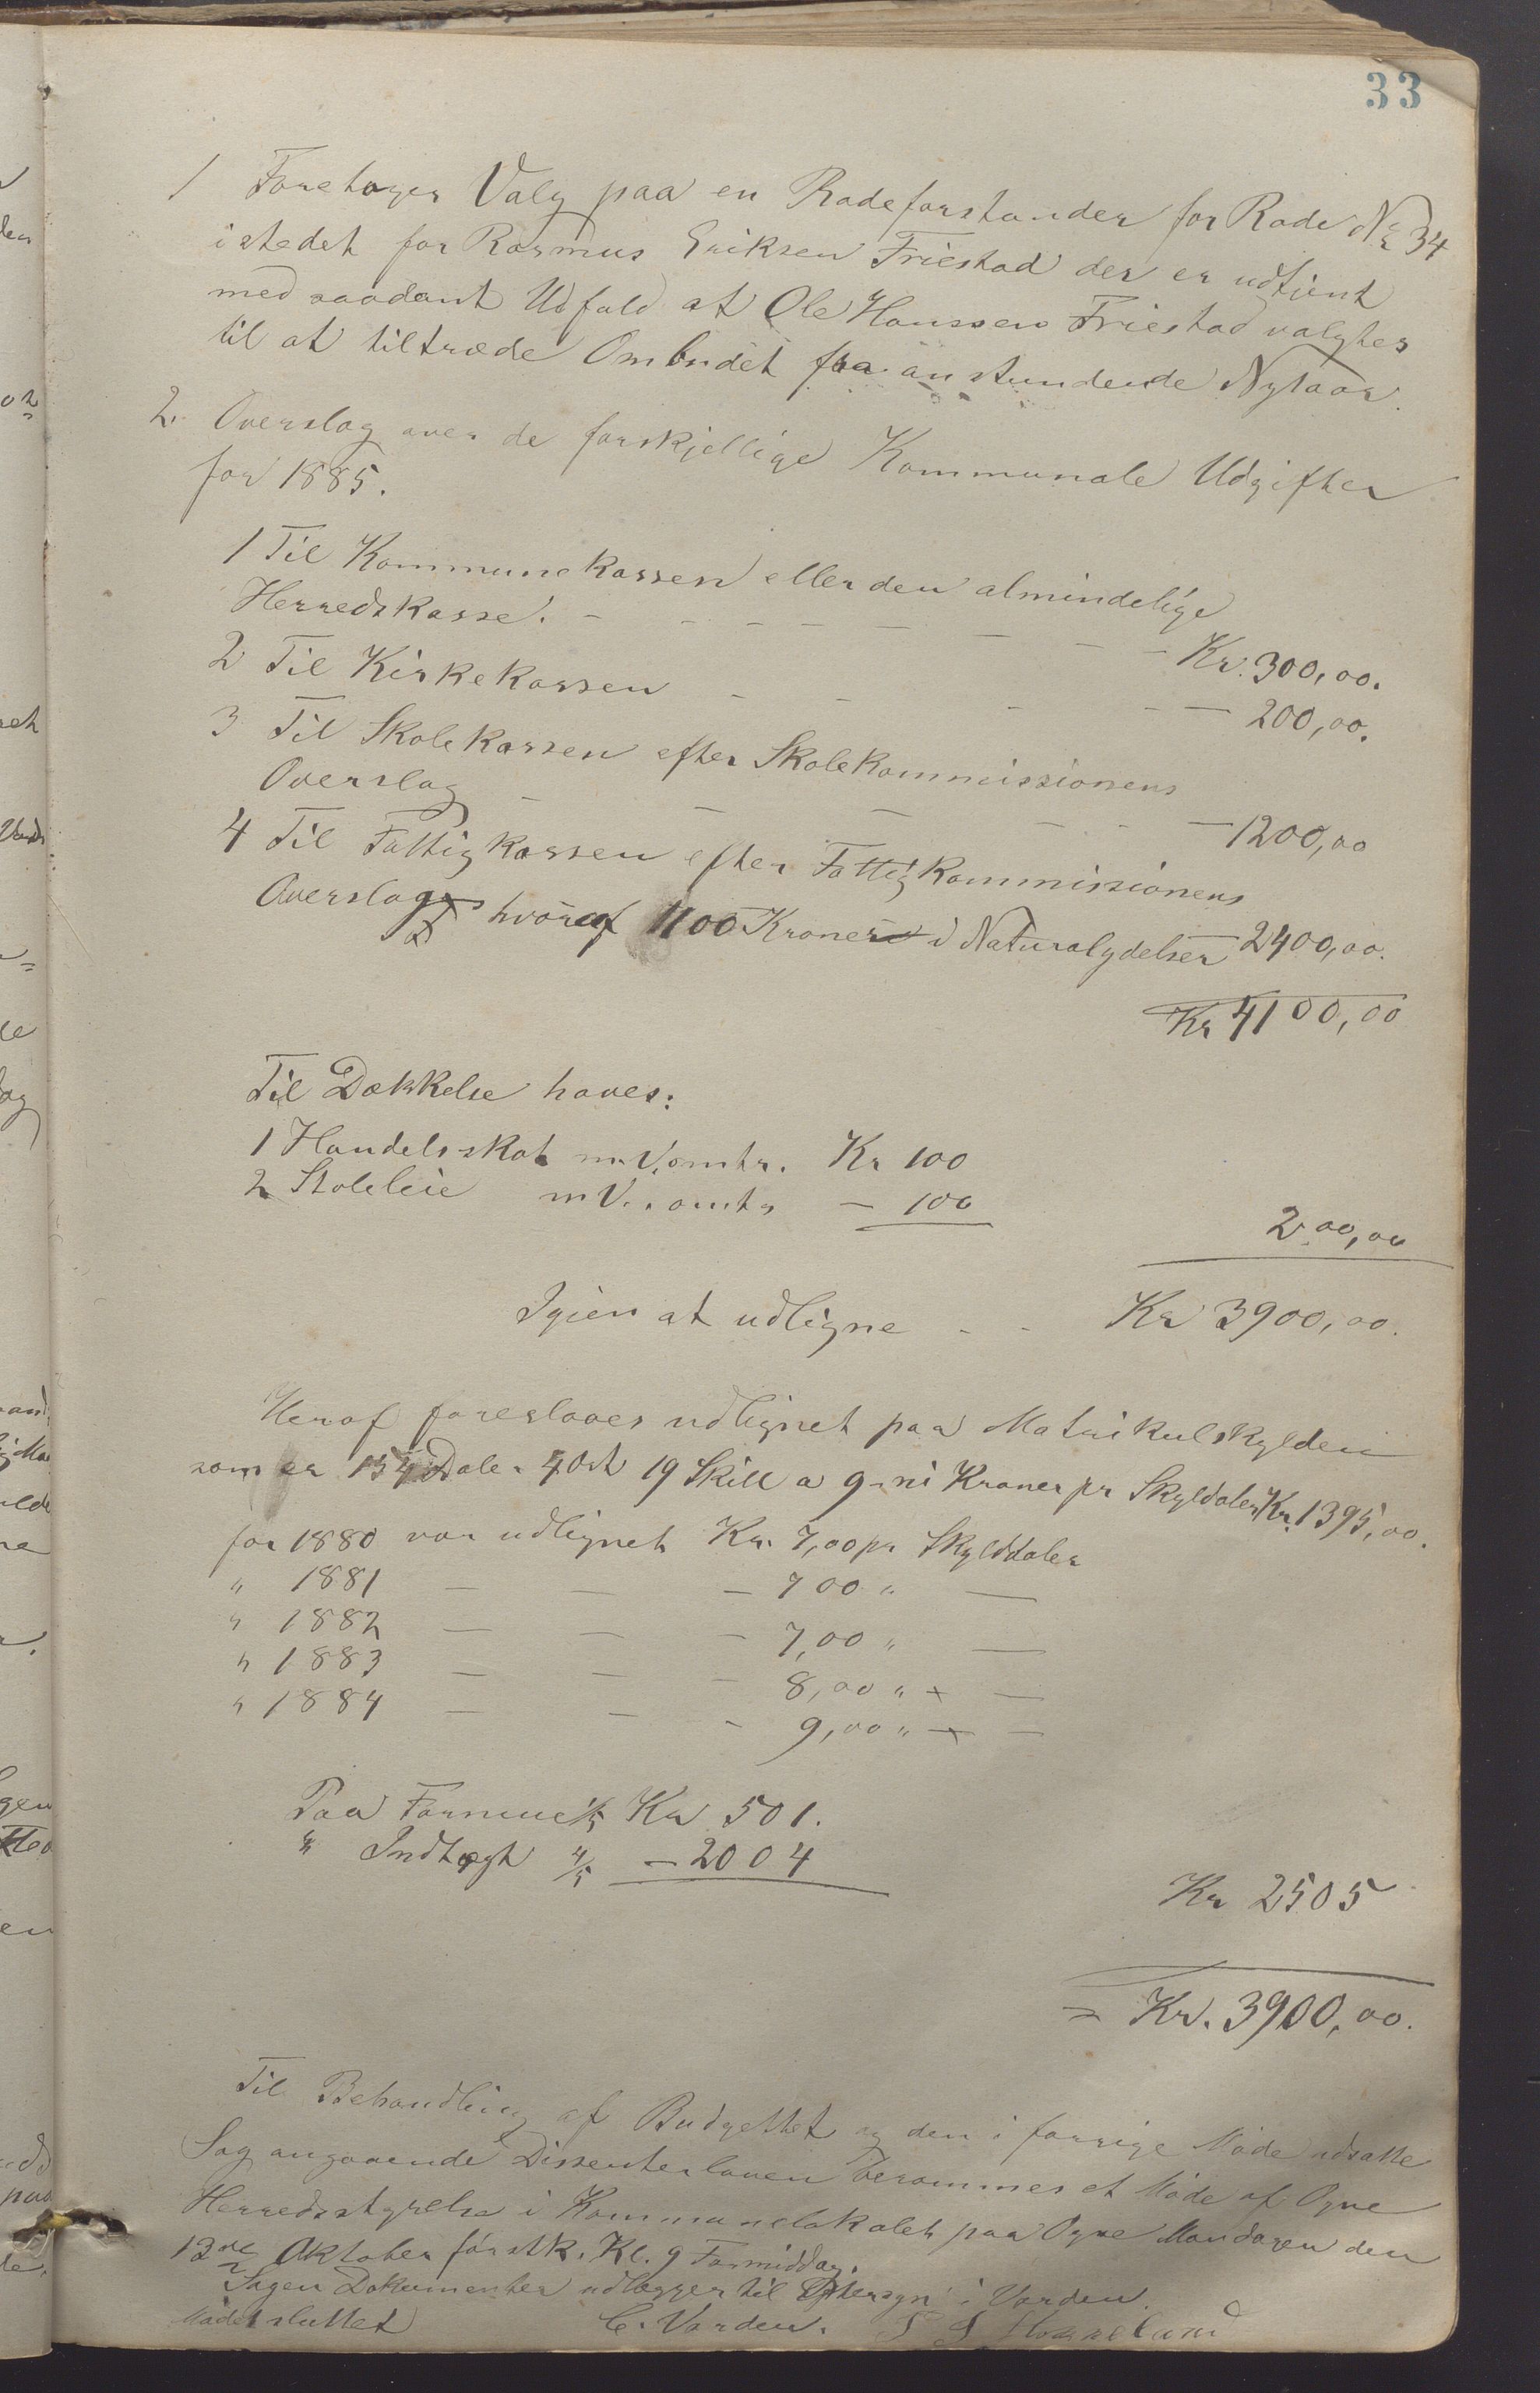 33
1 Foretoges Valg paa en Rodeforstander for Rode No 34
istedet for Rasmus Eriksen Friestad der er udtjent
med saadant Udfald at Ole Hanssen Friestad valgtes
til at tiltræde Ombudet fra anstundende Nytaar.
2. Overslag over de forskjellige Kommunale Udgifter
for 1885.
1 Til Kommunekassen eller den almindelige
Herredskasse. - - - - - - - - - Kr. 300,00.
2 Til Kirkekassen - - - - - 200,00.
3 Til Skolekassen efter Skolekommissionens
Overslag - - - - - - 1200,00
4 Til Fattigkassen efter Fattigkommissionens
Overslag hvoraf 1100 Kroner i Naturalydelser 2400,00.
Kr 4100,00
Til Dækkelse haves:
1 Handelsskat m.V. omtr. Kr 100
2 Stoleleie m V. omtr - 100
200,00
Igien at udligne - - Kr 3900,00.
Heraf foreslaaes udlignet paa Matrikulskylden
som er 154 Daler 4 Ort 19 Skill a 9 - ni Kroner pr Skyldaler Kr. 1395,00.
for 1880 var udlignet Kr. 7,00 pr Skylddaler
" 1881 — — — 7 00 " —
" 1882 — — - 7,00 " —
" 1883 — — - 8,00 " + —
" 1884 — - - 9,00 " + —
Paa Formue 1/5 Kr 501.
" Indtægt 4/5 — 2004
Kr 2505
= Kr. 3900,00.
Til Behandling af Budgettet og den i forrige Møde udsatte
Sag angaaende Dissenterloven berammes et Møde af Ogne
Herredsstyrelse i Kommunelokalet paa Ogne Mandagen den
13de Oktober førstk. Kl. 9 Formiddag.
Sagen Dokumenter udlægges til Eftersyn i Varden.
Mødet sluttet C. Varden. S S